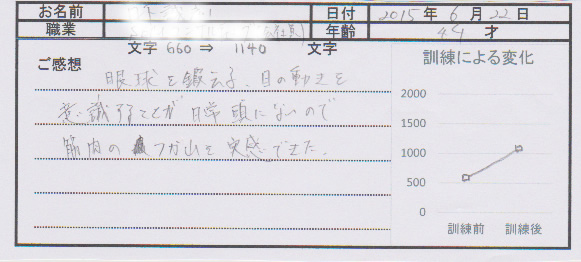 お名前 日付 2015年 6月 22日
職業 年齢 44 才
文字 660 ⇒ 1140 文字
ご感想 訓練による変化
眼球を鍛える、目の動きを
意識することが日常頭にないので
筋肉の つかれを実感できた。
2000
1500
1000
500
0
訓練前 訓練後